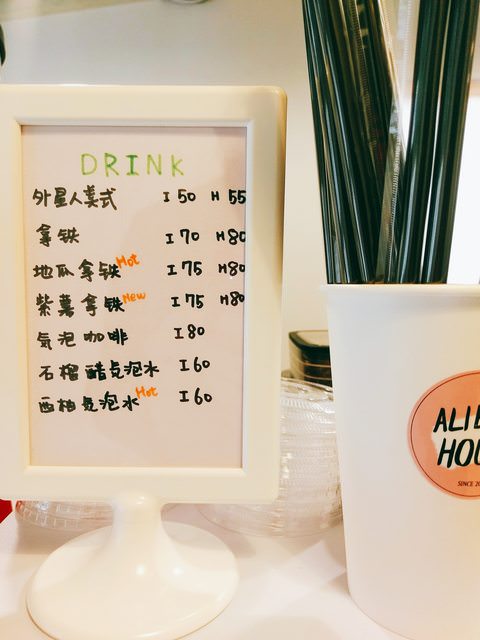 DRINK
外星人美式 I 50 H 55
拿铁 I 70 H 80
地瓜拿铁 Hot I 75 H 80
紫薯拿铁 New I 75 H 80
気泡咖啡 I 80
石榴醋気泡水 I 60
西柚気泡水 Hot I 60
ALI
HOU
SINCE 20